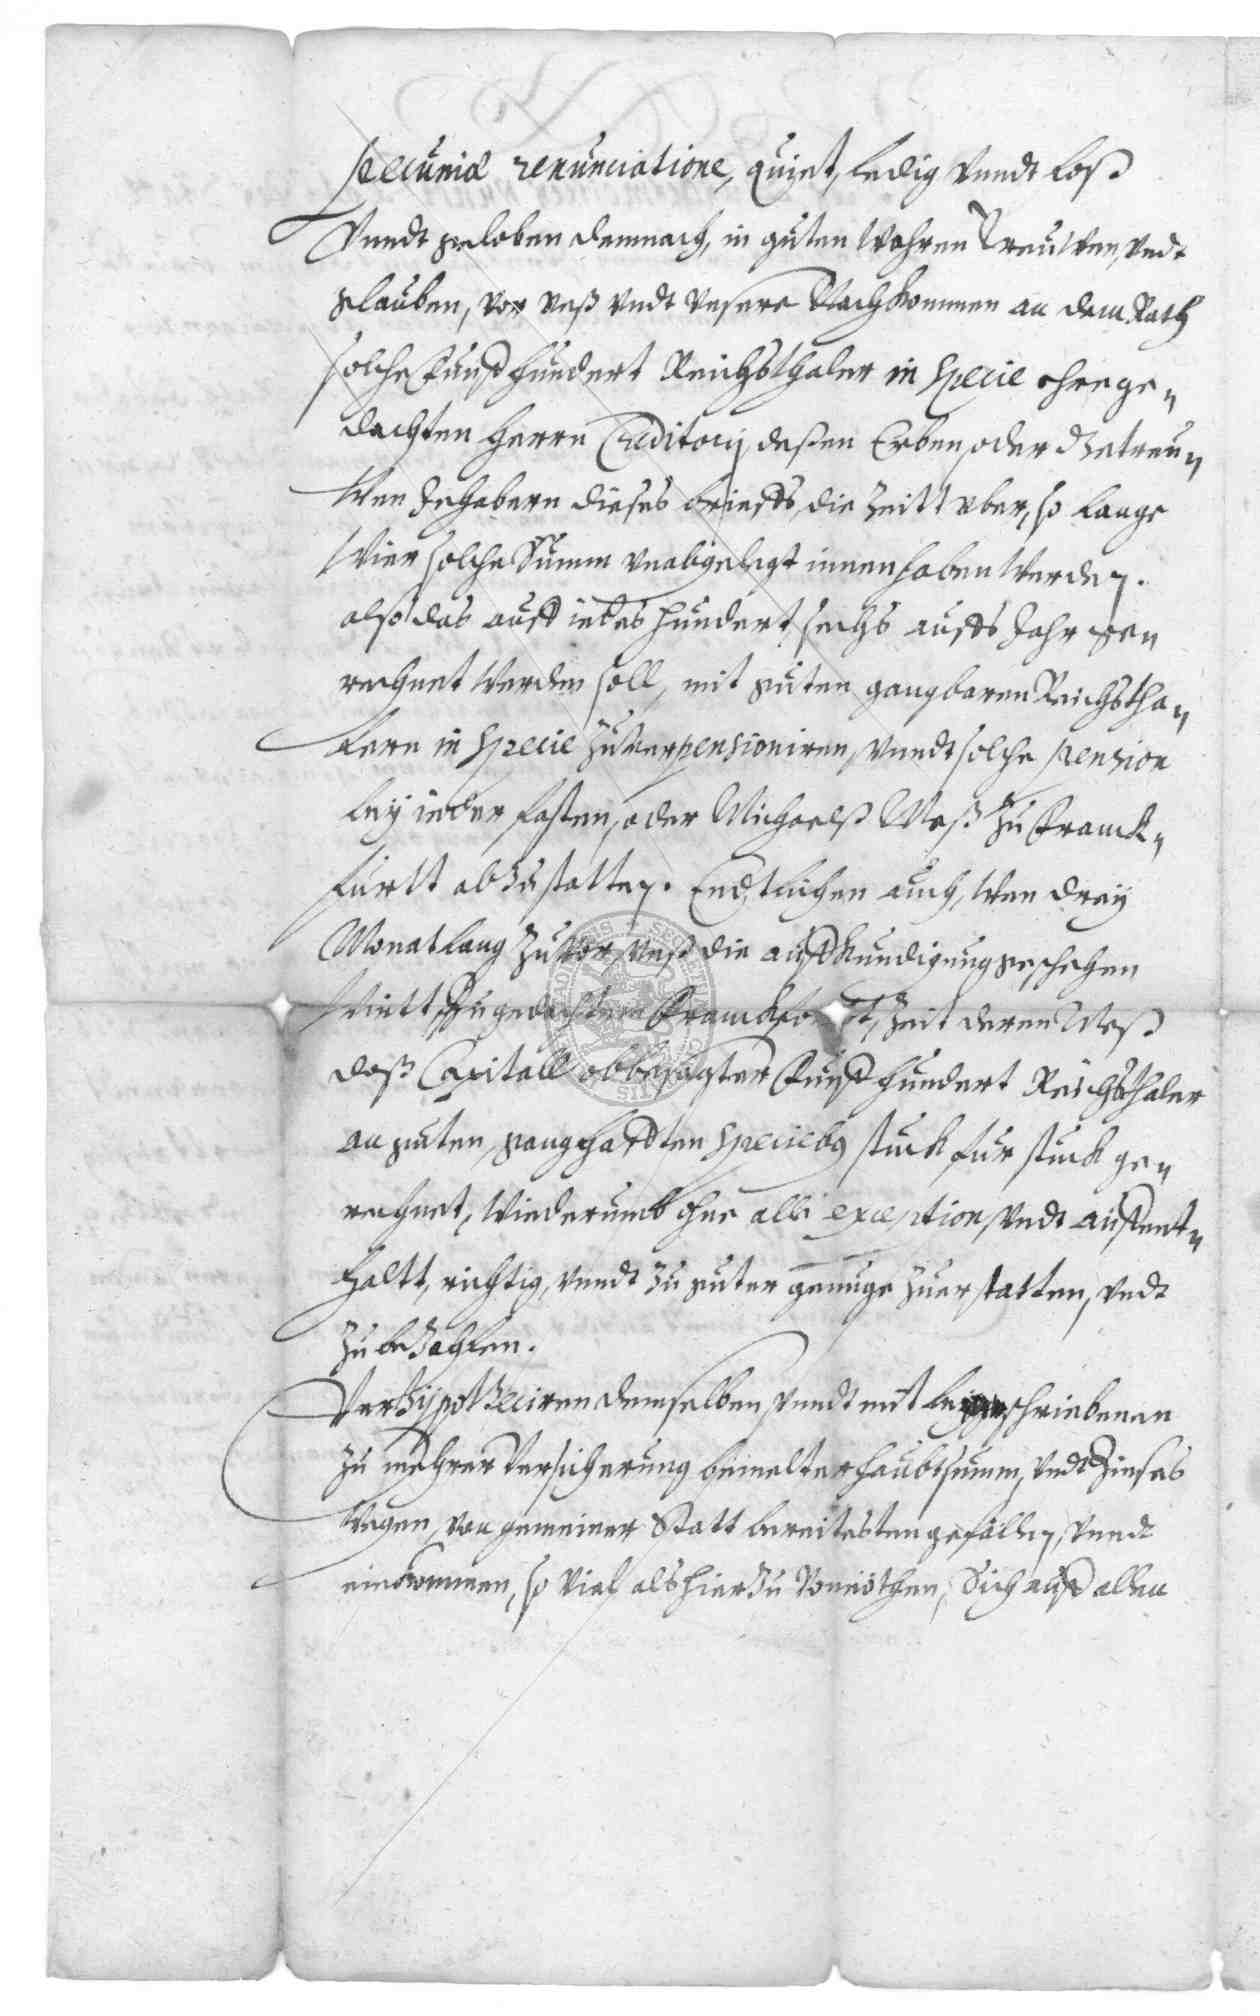 pecuniæ renunciatione, quijt, ledig vnndt loß
Vnndt geloben demnach, in guten Wahren Treuwen, vndt
glauben, vor vnß vndt vnsere Nachkommen an dem Rath
solche Funff hundert Reichsthaler in specie ehrnge„
dachten Herrn Creditorij, deßen Erben, oder Getreu„
wen Inhabern dieses brieffs, die Zeitt vber, so lange
Wier solche Summ vnabgelegt innenhaben Werden.
also das auff iedes hundert, sechs auffs Jahr ge„
rechnet Werden soll, mit guten gangbaren Reichstha„
lern in specie Zuuerpensioniren, vnndt solche pension
bey ieder fasten, oder Michaelß Meß Zu Franck„
furtt abzustatten. Endtlichen auch, Wen drey
Monat lang Zuuor, vnß die auffkundigung geschehen
Wirtt, Zu gedachtem Franckfortt, Zeit deren Meß
daß Capitall obbesagter Funff hundert Reichsthaler
an guten, ganghafften speciebus stuck fur stuck ge„
rechnet, Wiederumb ohne alle exception, vndt auffent„
haltt, richtig, vnndt Zu guter genuge Zuerstatten, vndt
Zubezahlen.
Verhypotheciren demselben, vnndt mit schriebenen
Zu mehrer Versicherung bemelter haubtsumm, vndt Zinses
Wegen, von gemeiner Statt bereitesten gefällen, vnndt
einkommen, so Viel als hierzu Vonnöthen, Sich auß allen